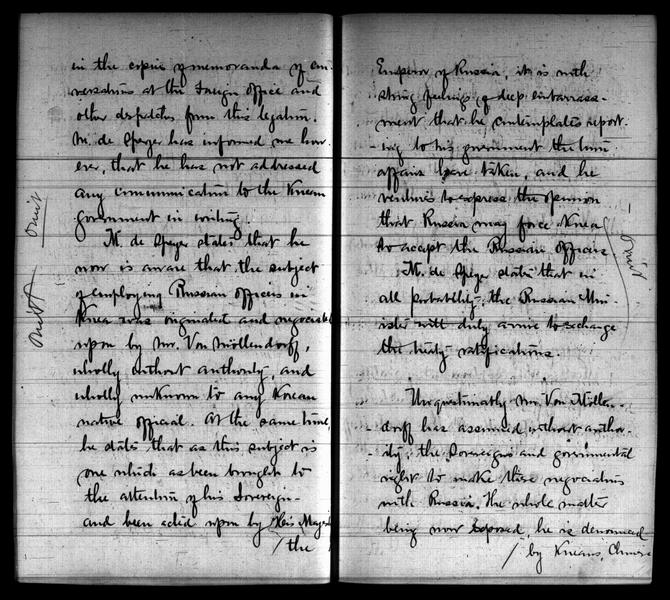 in the copies of memoranda of con-
versations at the Foreign Office and
other dispatches from this legation.
M. de Speyer has informed me how-
ever, that he has not addressed
any communication to the Korean
government in writing.
M. de Speyer states that he
now is aware that the subject
of employing Russian officers in
Korea was originated and negotiated
upon by Mr. Von Mollendorff,
wholly without authority, and
wholly unknown to any Korean
native official. At the same time,
he states that as this subject is
one which as been brought to
the attention of his Sovereign-
and been acted upon by His Majesty
/ the
omit
omit
Emperor of Russia, it is with
strong feelings of deep embarrass-
ment that he contemplates report-
ing to his government the turn
affairs have taken, and he
ventures to express the opinion
that Russia may force Korea
to accept the Russian officers
M. de Speyer states that in
all probability, the Russian Min-
ister will duly arrive to exchange
the treaty ratifications.
omit
Unquestionably Mr. Von Mollen-
dorff has assumed without author-
ity, the Sovereigns and governmental
right to make these negociations
with Russia. The whole matter
being now exposed, he is denounced
/ by Koreans, Chinese